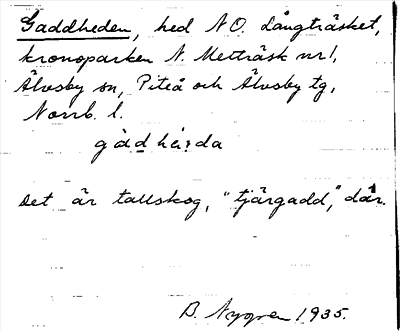 Gaddheden, hed N.O. Långträsket,
kronoparken N. Metträsk nr 1,
Älvsby sn, Piteå och Älvsby tg,
Norrb. l.
Det är tallskog, "tjärgadd," där.
B. Nygren 1935.